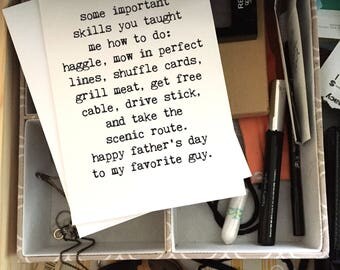 some important
skills you taught
me how to do:
haggle, mow in perfect
lines, shuffle cards,
grill meat, get free
cable, drive stick,
and take the
scenic route.
happy father's day
to my favorite guy.